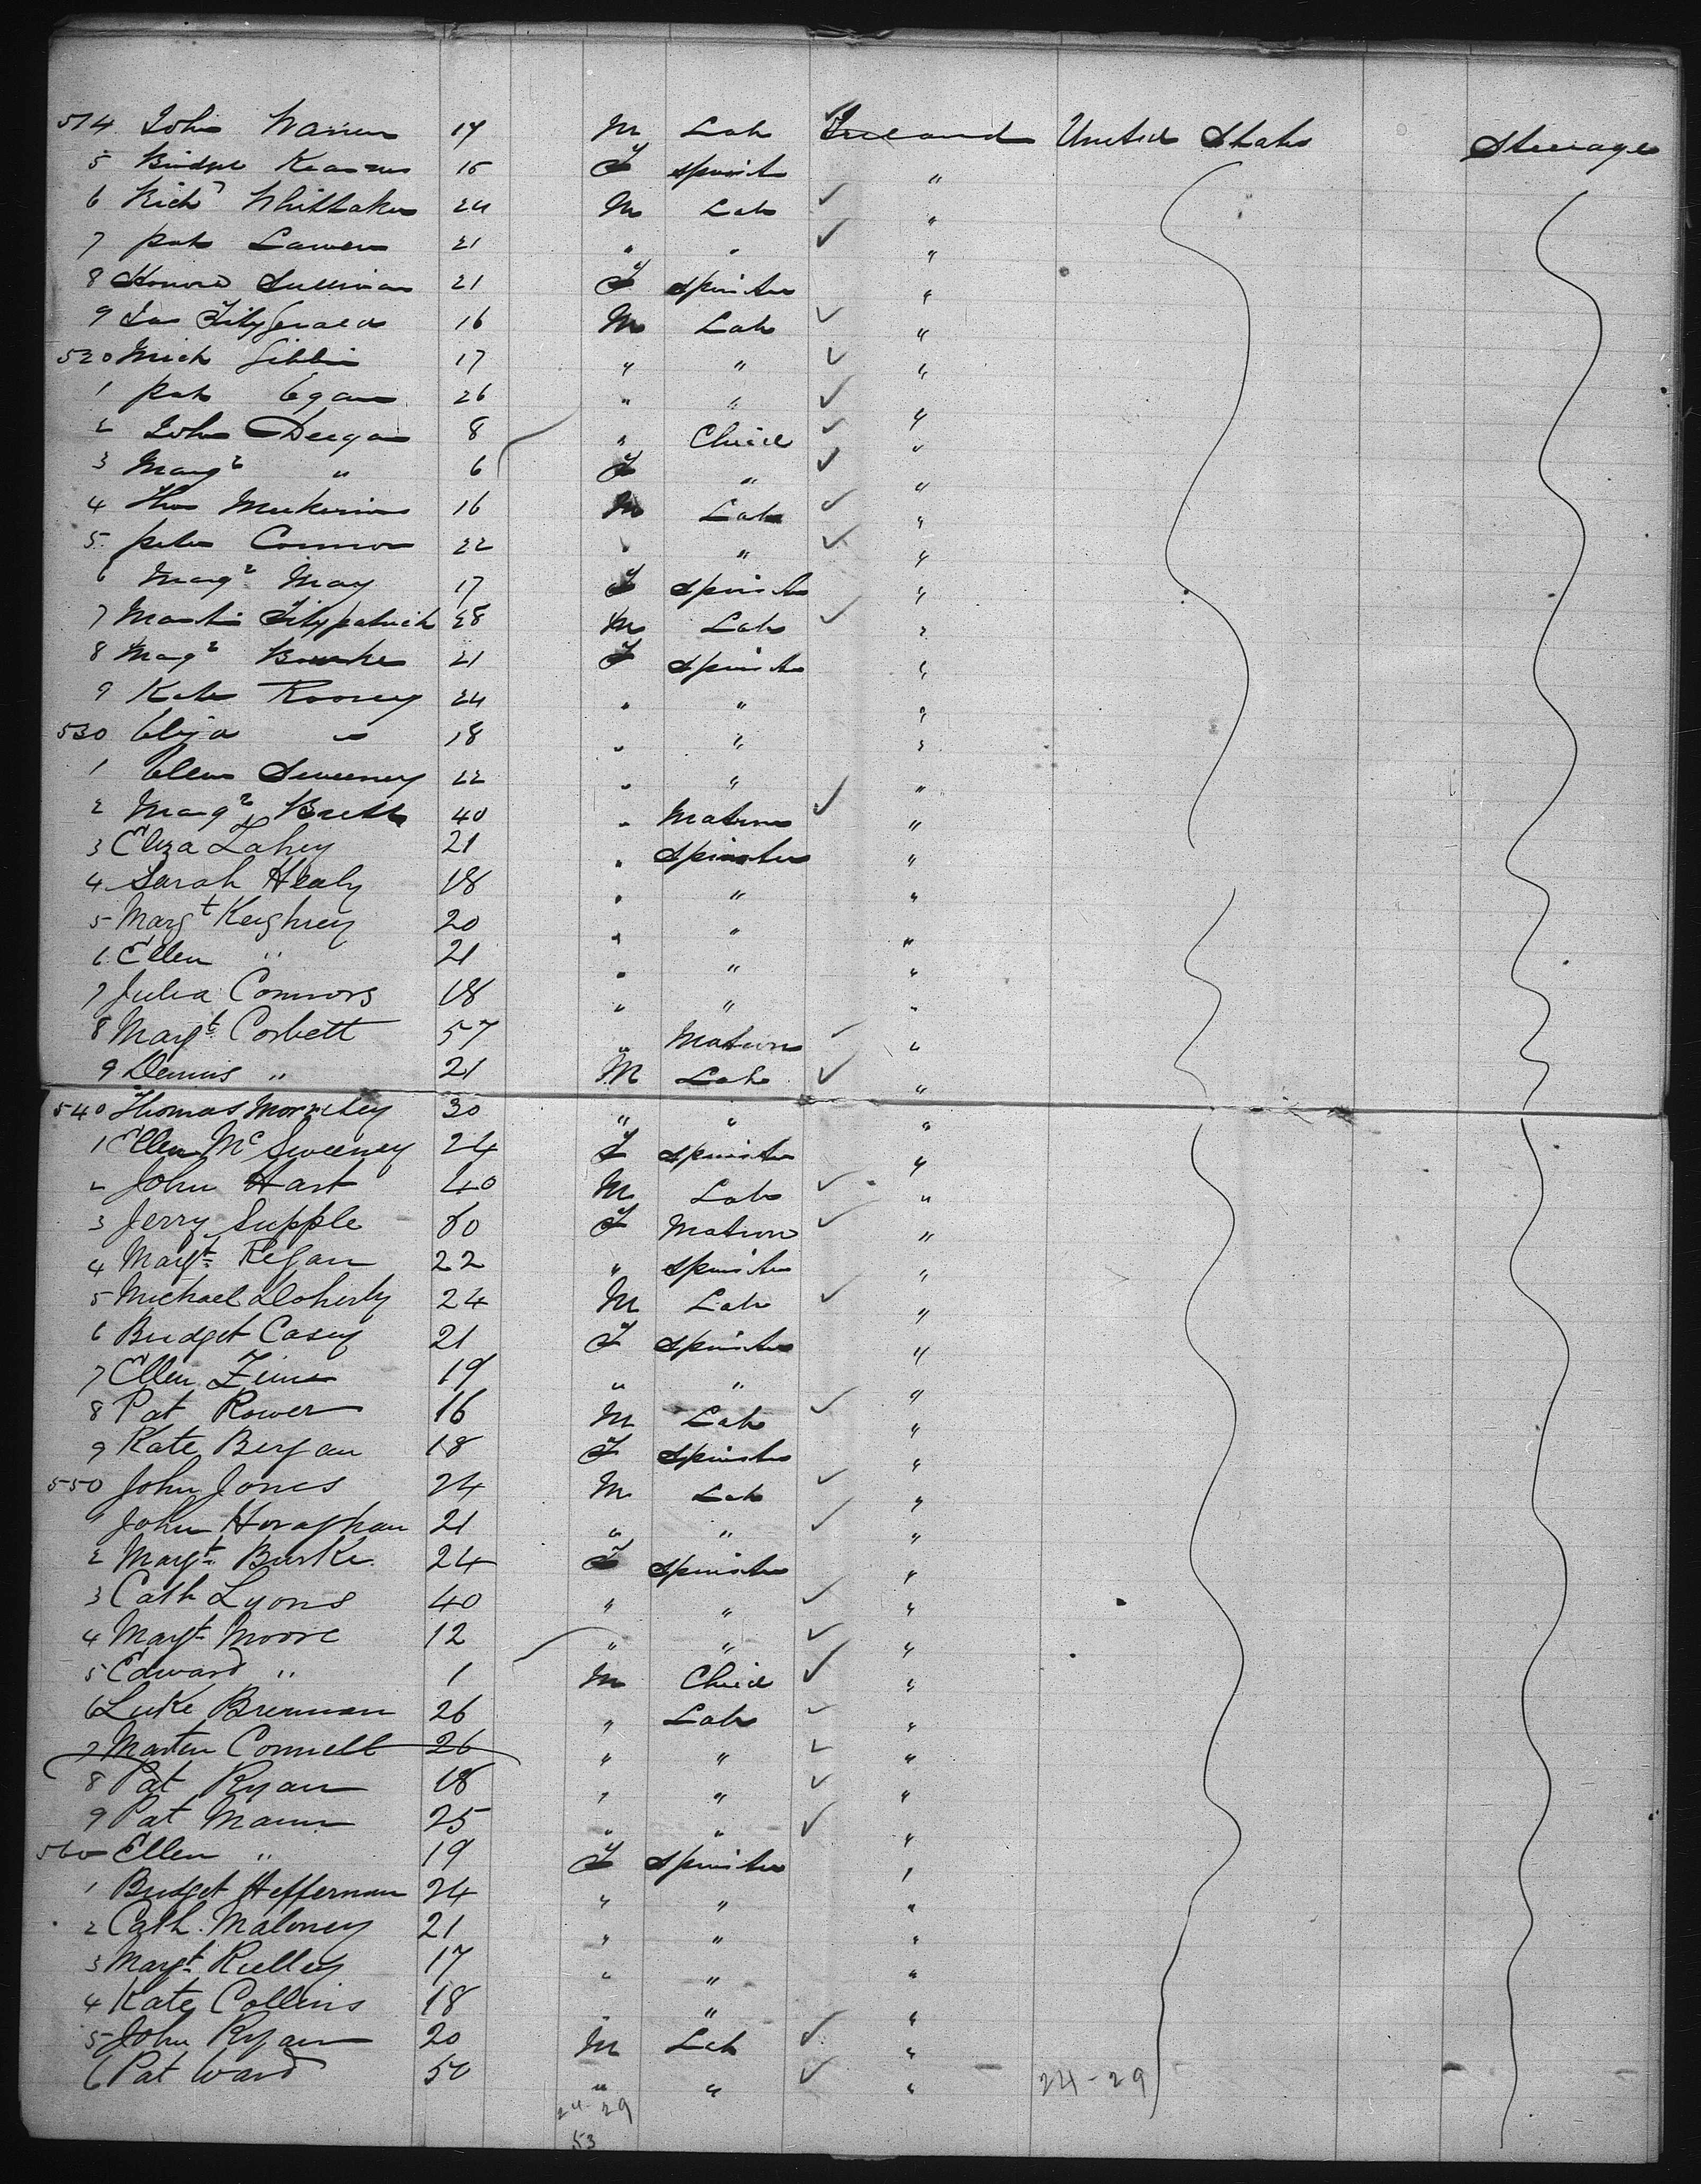 514 John Warren 17 M Lab Ireland United States Steerage
5 Bridget 15 F Spinster "
6 Richd Whittaker 24 M Lab "
7 Pat 21 " " "
8 Honora Sullivan 21 F Spinster "
9 Fitzgerald 16 M Lab "
520 Mich 17 " " "
1 Pat Egan 26 " " "
2 John Deegan 8 " Child "
3 Margt " 6 F " "
4 Thos 16 M Lab "
5 Peter Connor 22 " " "
6 Margt May 17 F Spinster "
7 Martin Fitzpatrick 28 M Lab "
8 Margt Bourke 21 F Spinster "
9 Kate Rooney 24 " " "
530 Eliza " 18 " " "
1 Ellen Sweeney 22 " " "
2 Margt Brett 40 " Matron "
3 Eliza Lahey 21 " Spinster "
4 Sarah Healy 18 " " "
5 Margt Keighrey 20 " " "
6 Ellen " 21 " " "
7 Julia Connors 18 " " "
8 Margt Corbett 57 " Matron "
9 Dennis " 21 M Lab "
540 Thomas Morrissey 30 " " "
1 Ellen McSweeney 24 F Spinster "
2 John Hart 40 M Lab "
3 Jerry Supple 60 F Matron "
4 Margt Regan 22 " Spinster "
5 Michael Doherty 24 M Lab "
6 Bridget Casey 21 F Spinster "
7 Ellen 19 " " "
8 Pat Power 16 M Lab "
9 Kate Bergan 18 F Spinster "
550 John Jones 24 M Lab "
1 John Horaghan 21 " " "
2 Margt Burke 24 F Spinster "
3 Cath Lyons 40 " " "
4 Margt Moore 12 " " "
5 Edward " 1 M Child "
6 Luke Brennan 26 " Lab "
7 Marten Connell 26 " " "
8 Pat Ryan 18 " " "
9 Pat Mann 25 " " "
560 Ellen " 19 F Spinster "
1 Bridget Heffernan 24 " " "
2 Cath. Maloney 21 " " "
3 Margt Kelley 17 " " "
4 Kate Collins 18 " " "
5 John Ryan 20 M Lab "
6 Pat Ward 50 " " " 24-29
24-29
53